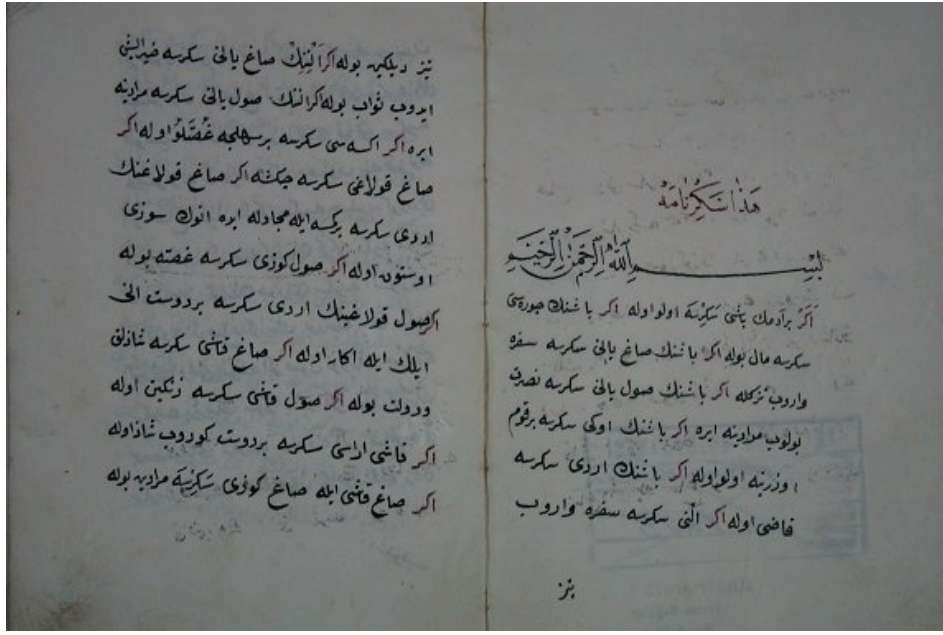 هذا سكرنامه
بسم الله الرحمن الرحيم
اكر برآدمك باشى سكرسه اولو اوله اكر باشنك جوره سى
سكرسه مال بوله اكر باشنك صاغ يانى سكرسه سفره
واروب تزكله اكر باشنك صول يانى سكرسه نصرت
بولوب مرادينه ايره اكر باشنك اوكى سكرسه برقوم
اوزرينه اولو اوله اكر باشنك اردى سكرسه
قاضى اوله اكر آلنى سكرسه سفره واروب
تيز
تيز ديلكين بوله اكر آلنينك صاغ يانى سكرسه خير ايشى
ايدوب ثواب بوله اكر النك صول يانى سكرسه مرادينه
ايره اكر اكسه سى سكرسه برسهلجه غصّه لو اوله اكر
صاغ قولاغى سكرسه چكشه اكر صاغ قولاغنك
اردى سكرسه بركسه ايله مجادله ايده انوك سوزى
اوستون اوله اكر صول كوزى سكرسه غصه بوله
اكر صول قولاغينك اردى سكرسه بردوست انى
ايلك ايله اكار اوله اكر صاغ قاشى سكرسه شاذلق
ودولت بوله اكر صول قاشى سكرسه زنكين اوله
اكر قاشى اراسى سكرسه بردوست كوروب شاذ اوله
اكر صاغ قاشى ايله صاغ كوزى سكرسه مرادين بوله